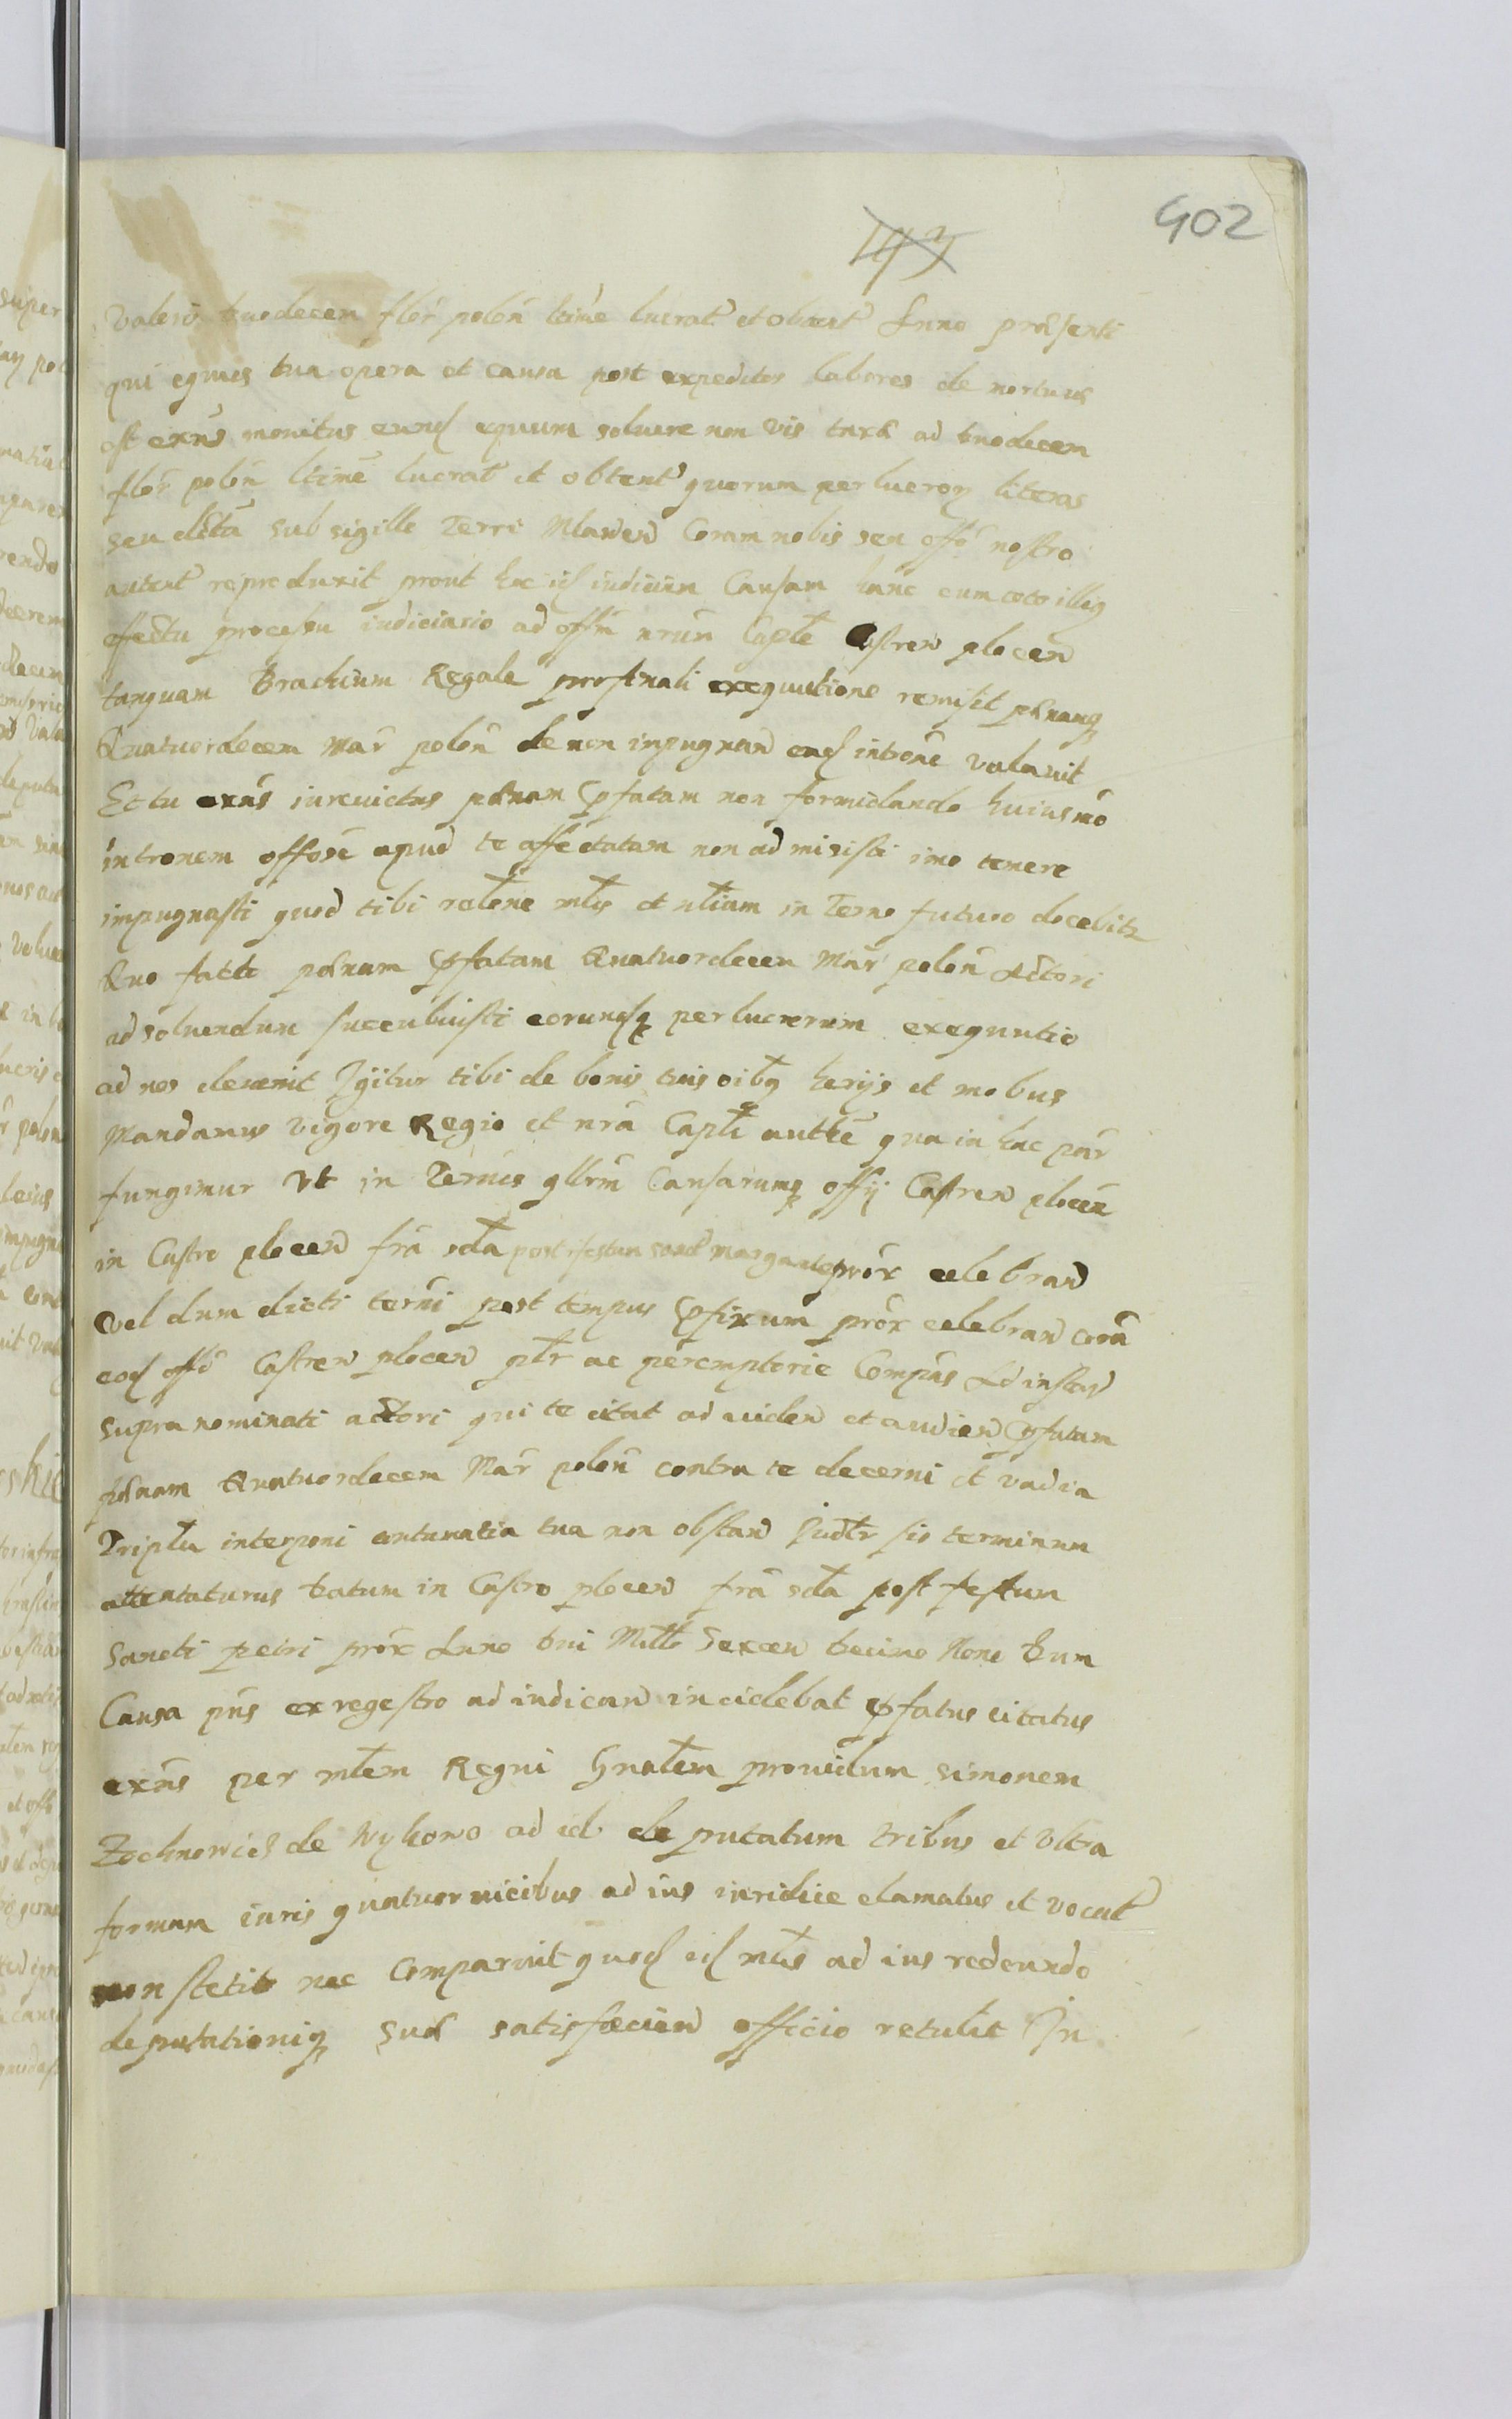 402
valeris duodecem flor polon ltime lucrat et obtent Anno præsenti
qui equus tua opera et causa post expeditos labores de mortuus
est exns monitus eund equum soluere non vis taxæ ad duodecem
flor polon ltime lucrat et obtent quorum per lucrorq literas
seu dctu sub sigillo Terri Mlawen Coram nobis seu offo nostro
autent reproduxit prout hoc id iudicium Causam hanc cum toto illiq
effectu processu iudiciario ad offm nrum Caple Castren plocen
tanquam Brachium Regale pro finali exequutione remisit pænamq
Quatuordecem Mar polon de non impugnan ead introne valauit
Et tu exns iurevictus pænam pfatam non formidando huiusmo
intronem offose apud te affectatam non admisisti imo temere
impugnasti quod tibi relone mtis et nliam in Terno futuro docebitr
Quo facto pænam pfatam Quatuordecem Mar polon Actori
ad soluendum succubuisti eorundq per lucrorum exequutio
ad nos deuenit Igitur tibi de bonis tuis oibq herijs et mobus
Mandamus vigore Regio et nra Capli authe qua in hac par
fungimur Vt in Ternis qllrm Causarumq offij Castren plocen
in Castro plocen fra scda post festum sanct Margarite prox celebran
vel dum dicti terni post tempus pfixum prox celebran cora
eod offo Castren plocen pltr ac peremptorie Compas Ad instan
supra nominati actori qui te citat ad uiden et audien pfatam
pænam Quatuordecem Mar polon contra te decerni et vadia
Tripla interponi contumatia tua non obstan Judltr sis terminum
attentaturus Datum in Castro plocen fra scda post festum
Sancti petri prox Anno Dni Mille Sexcen Decimo Nono Dum
Causa pns ex regestro ad iudican incidebat pfatus citatus
exns per mtem Regni Gnalem prouidum simonem
Zochnowicz de Wykowo ad id deputatum tribus et vltra
formam iuris quatuor uicibus ad ius iuridice clamatus et vocat
non stetit nec Comparuit quod id mtis ad ius redeundo
deputationiq suæ satisfacien officio retulit In